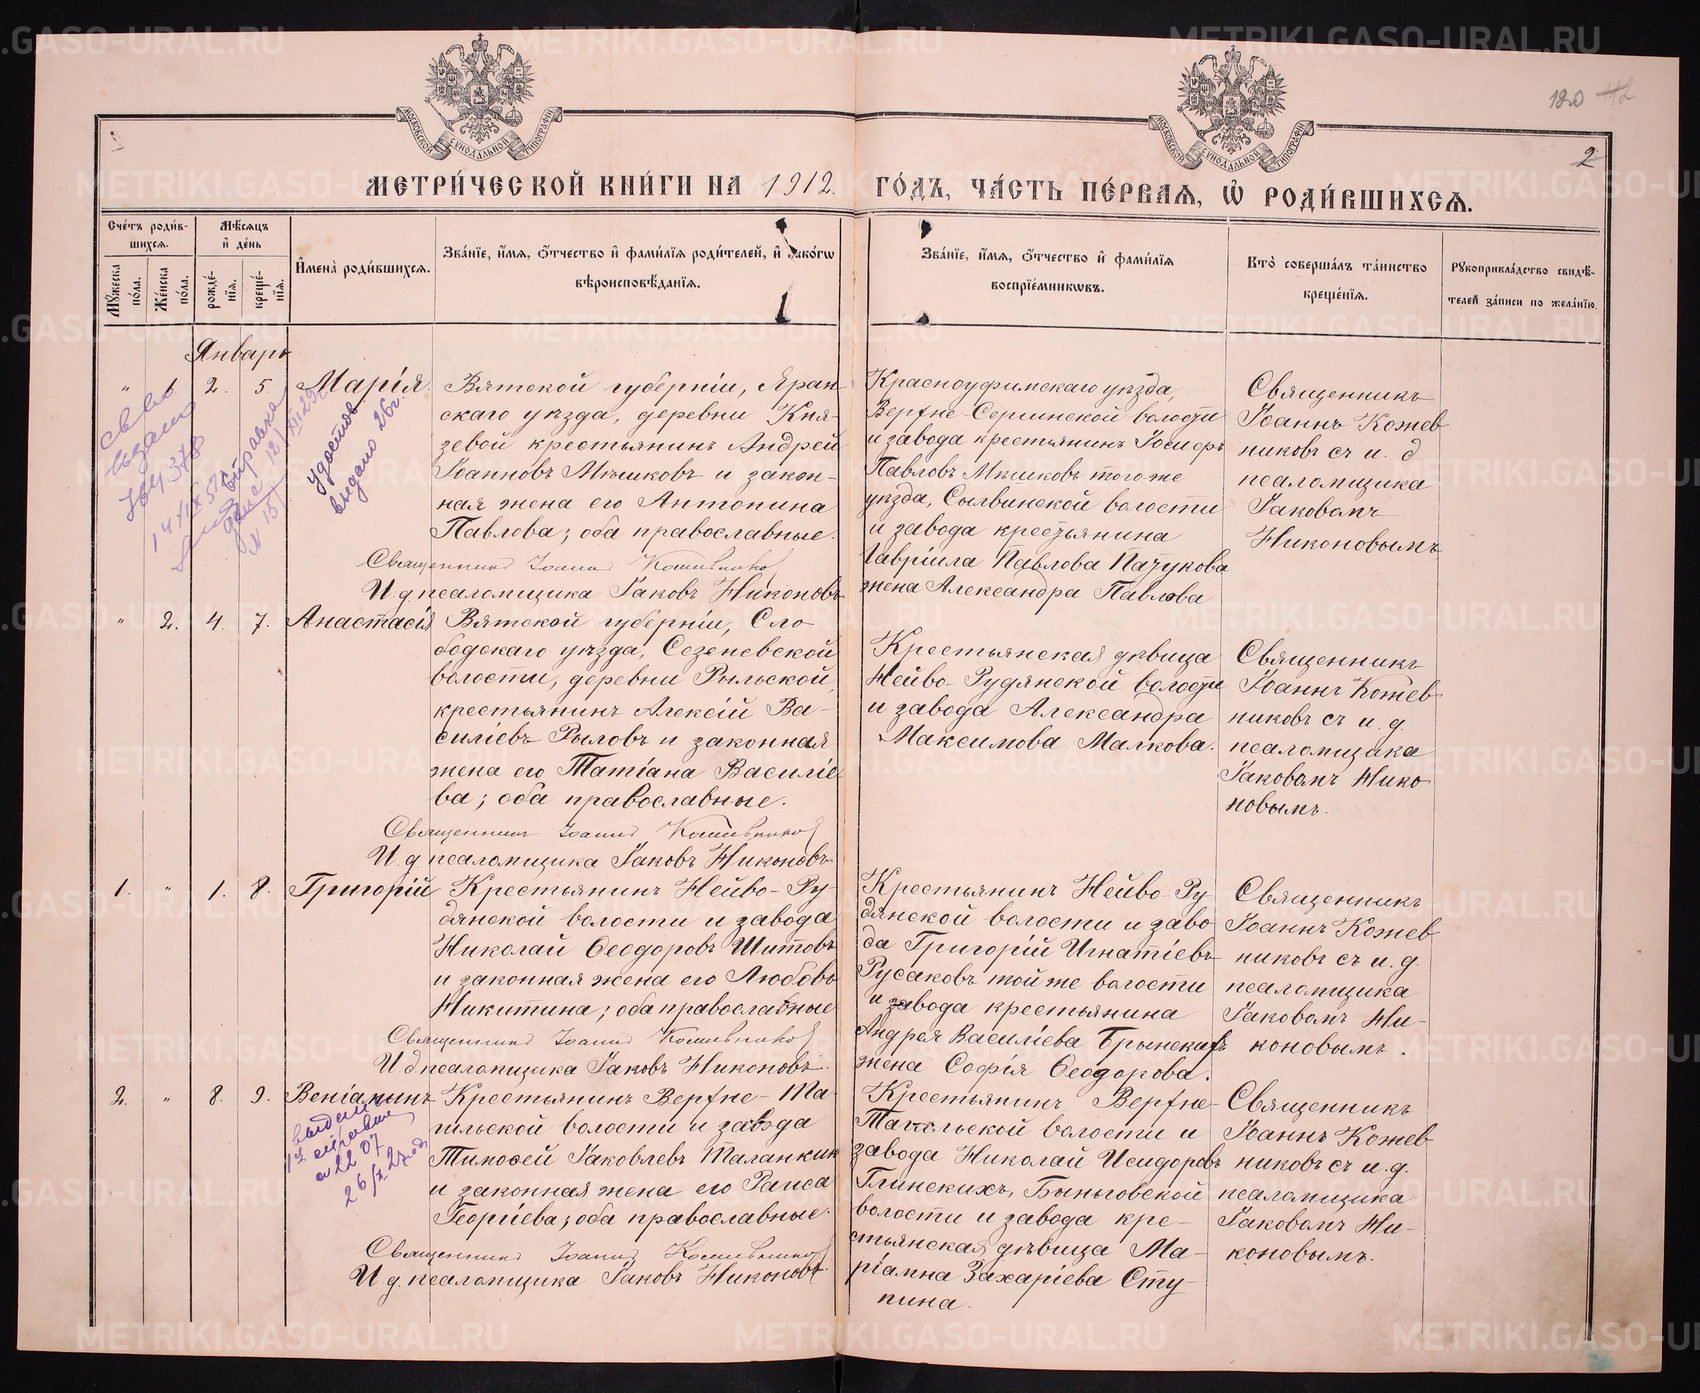 120
2
МОСКОВСКОЙ СѴНОДАЛЬНОЙ ТИПОГРАФІИ
МОСКОВСКОЙ СѴНОДАЛЬНОЙ ТИПОГРАФІИ
МЕТРИ́ЧЕСКОЙ КНИ́ГИ НА 1912. ГО́ДЪ, ЧА́СТЬ ПЕ́РВАЯ, Ѽ РОДИ́ВШИХСЯ.
Сче́тъ роди́в-
шихся.
Мꙋ́жеска по́ла.
Же́нска по́ла.
Мѣ́сяцъ
и҆ де́нь
рожде́-
нїя.
креще́-
нїя.
И҆мена̀ роди́вшихся.
Зва́нїе, и҆́мя, ѻ҆́тчество и҆ фами́лїя роди́телей, и҆ како́гѡ
вѣроисповѣ́данїя.
Зва́нїе, и҆́мя, ѻ҆́тчество и҆ фами́лїя
воспрїе́мникѡвъ.
Кто̀ соверша́лъ та́инство
креще́нїя.
Рꙋкоприкла́дство свидѣ́-
телей за́писи по жела́нїю.
Январь
" 1 2. 5. Марія
Вятской губерніи, Яран-
скаго уѣзда, деревни Кня-
зевой крестьянинъ Андрей
Іоанновъ Мѣшковъ и закон-
ная жена его Антонина
Павлова; оба православные.
Священникъ Іоаннъ Кожевниковъ
И. д. псаломщика Іаковъ Никоновъ
Красноуфимскаго уѣзда,
Верхне-Сергинской волости
и завода крестьянинъ Іосифъ
Павловъ Мѣшковъ того же
уѣзда, Сылвинской волости
и завода крестьянина
Гавріила Павлова Пачукова
жена Александра Павлова
Священникъ
Іоаннъ Кожев
никовъ съ и. д.
псаломщика
Іаковомъ
Никоновымъ
выдано
справка
удостов
выдано 26г.
" 2. 4. 7. Анастасія
Вятской губерніи, Сло
бодскаго уѣзда, Сезеневской
волости, деревни Рыльской,
крестьянинъ Алексій Ва-
силіевъ Рыловъ и законная
жена его Татіана Василіе
ва; оба православные.
Священникъ Іоаннъ Кожевниковъ
И. д. псаломщика Іаковъ Никоновъ
Крестьянская дѣвица
Нейво-Рудянской волости
и завода Александра
Максимова Малкова.
Священникъ
Іоаннъ Кожев
никовъ съ и. д.
псаломщика
Іаковомъ Нико
новымъ.
1. " 1. 8. Григорій
Крестьянинъ Нейво-Ру-
дянской волости и завода
Николай Ѳеодоровъ Шитовъ
и законная жена его Любовь
Никитина; оба православные
Священникъ Іоаннъ Кожевниковъ
И. д. псаломщика Іаковъ Никоновъ.
Крестьянинъ Нейво-Ру
дянской волости и заво
да Григорій Игнатіевъ
Русаковъ той же волости
и завода крестьянина
Андрея Василіева Брынскихъ
жена Софія Ѳеодорова.
Священникъ
Іоаннъ Кожев
никовъ съ и. д.
псаломщика
Іаковомъ Ни-
коновымъ.
2. " 8. 9. Веніаминъ
Крестьянинъ Верхне-Та-
гильской волости и завода
Тимоѳей Іаковлевъ Таланкин
и законная жена его Раиса
Георгіева; оба православные.
Священникъ Іоаннъ Кожевниковъ
И. д. псаломщика Іаковъ Никоновъ
Крестьянинъ Верхне-
Тагильской волости и
завода Николай Исидоровъ
Глинскихъ, Быньговской
волости и завода кре-
стьянская дѣвица Ма-
ріамна Захаріева Сту
пина.
Священникъ
Іоаннъ Кожев
никовъ съ и. д.
псаломщика
Іаковомъ Ни-
коновымъ.
METRIKI.GASO-URAL.RU